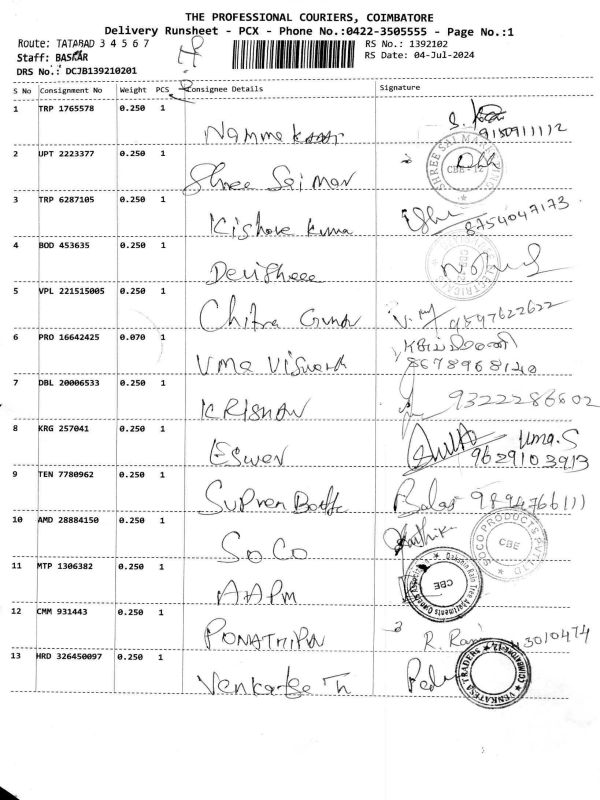 THE PROFESSIONAL COURIERS, COIMBATORE
Delivery Runsheet - PCX - Phone No.:0422-3505555 - Page No.:1
Route: TATABAD 3 4 5 6 7
RS No.: 1392102
Staff: BASKAR
RS Date: 04-Jul-2024
DRS No.: DCJB139210201
S No Consignment No Weight PCS Consignee Details Signature
1 TRP 1765578 0.250 1 Namma
9150911112
2 UPT 2223377 0.250 1 Shree Sai Mar
CBE - 12
3 TRP 6287105 0.250 1 Kishore Kuma 8754047173
4 BOD 453635 0.250 1
5 VPL 221515005 0.250 1 Chitra 9597622622
6 PRO 16642425 0.070 1 UMA
8678968140
7 DBL 20006533 0.250 1 KRISHAN 9322286602
8 KRG 257041 0.250 1 ESWER Uma.S
9629103913
9 TEN 7780962 0.250 1 Balaji 9894766111
10 AMD 28884150 0.250 1 SOCO Karthik SOCO PRODUCTS PVT LTD CBE
11 MTP 1306382 0.250 1 AAPM CBE
12 CMM 931443 0.250 1 R. Rani 43010474
13 HRD 326450097 0.250 1 VENKATESA TRADERS COIMBATORE-12